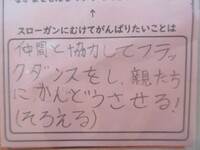 スローガンにむけてがんばりたいことは
仲間と協力してフラッ
クダンスをし、親たち
に かんどうさせる!
(そろえる)